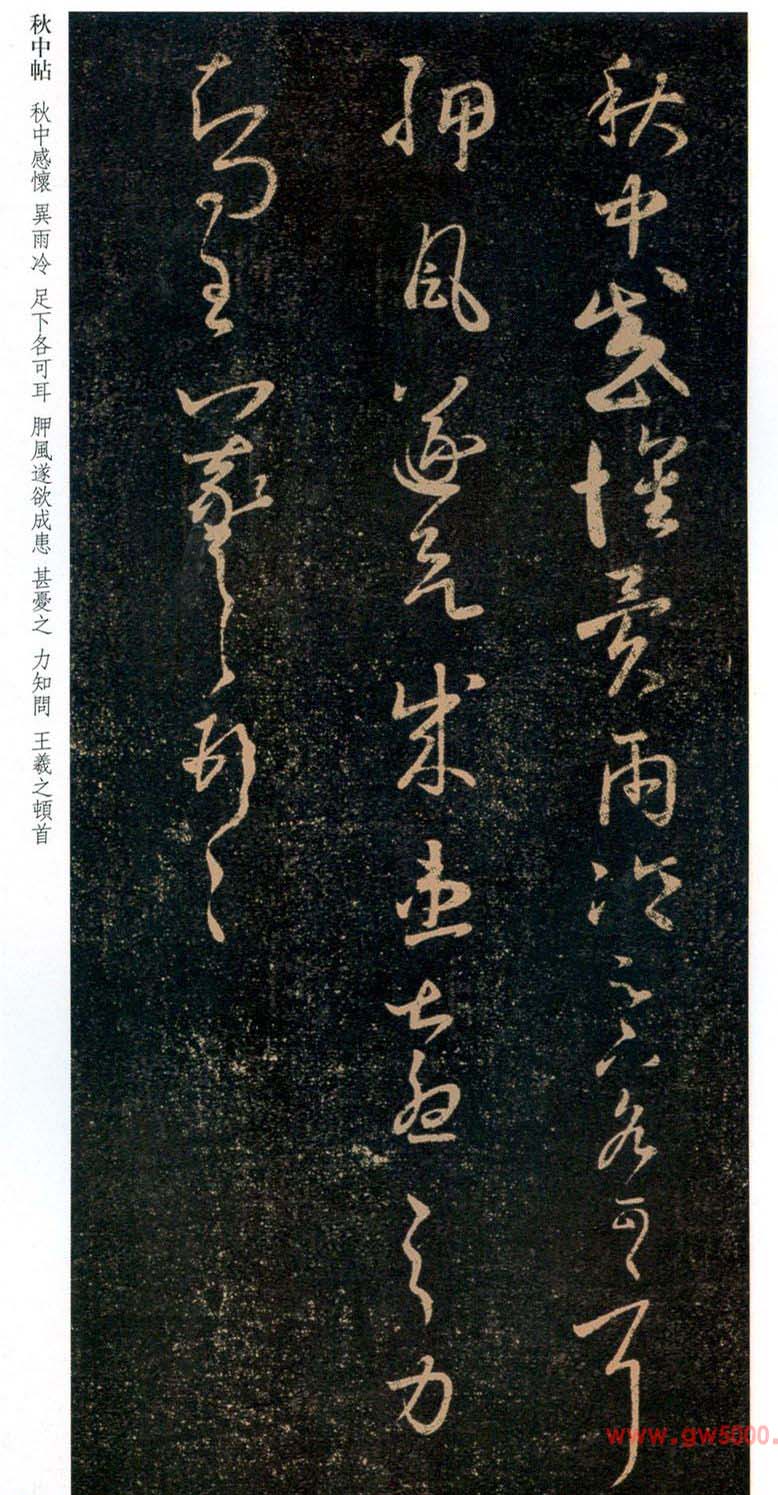 秋中感懷異雨冷足下各可耳
胛風遂欲成患甚憂之力
知問王羲之頓首
秋中帖 秋中感懷 異雨冷 足下各可耳 胛風遂欲成患 甚憂之 力知問 王羲之頓首
www.gw5000.